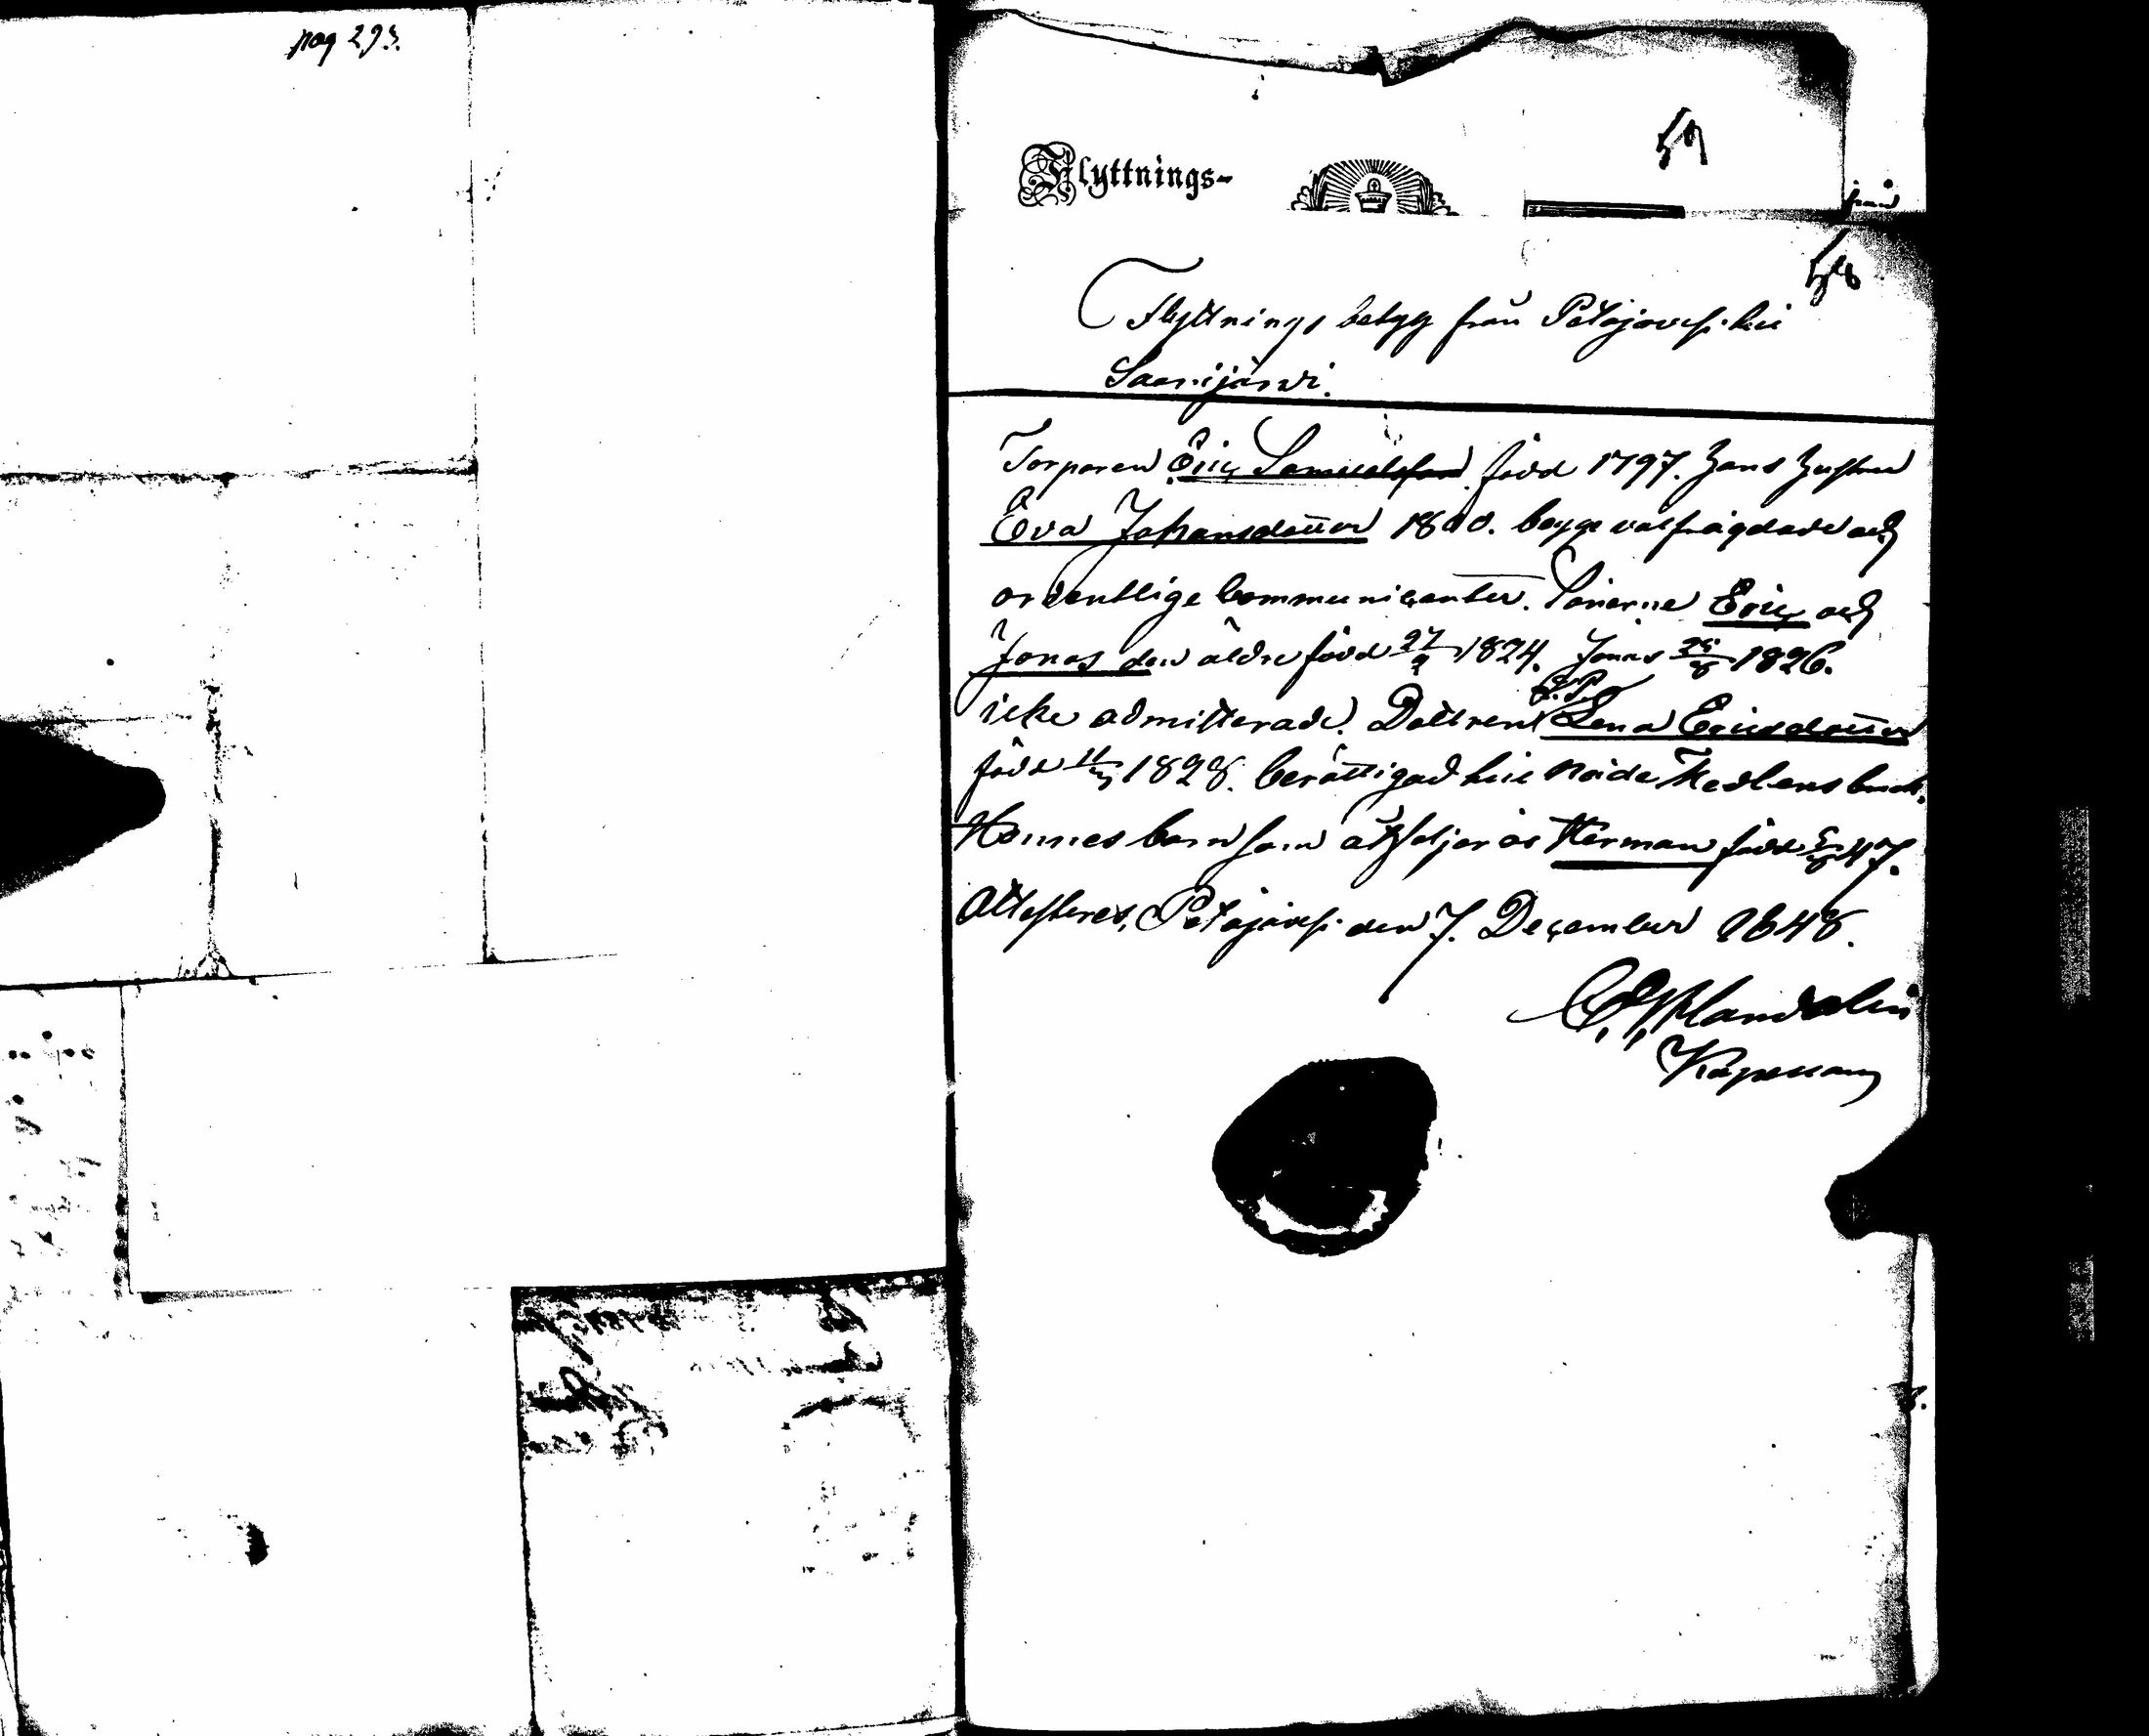 pag 293.
Flyttnings-
59
från
58
Flyttnings betyg från Petäjävesi till
Saarijärvi.
Torparen Eric Samuelsson född 1797. Hans hustru
Eva Johansdotter 1800. begge välfrägdade och
ordentlige Communicanter. Sönerne Eric och
Jonas den äldre född 27/9 1824. Jonas 1826.
icke admitterade. Dottren Lena Ericsdotter
född 1828. berättigad till Nåde Medlens bruk.
Hennes barn som åtföljer är Herman född 47.
Attesteres, Petäjävesi den 7. December 1848.
Kapellan